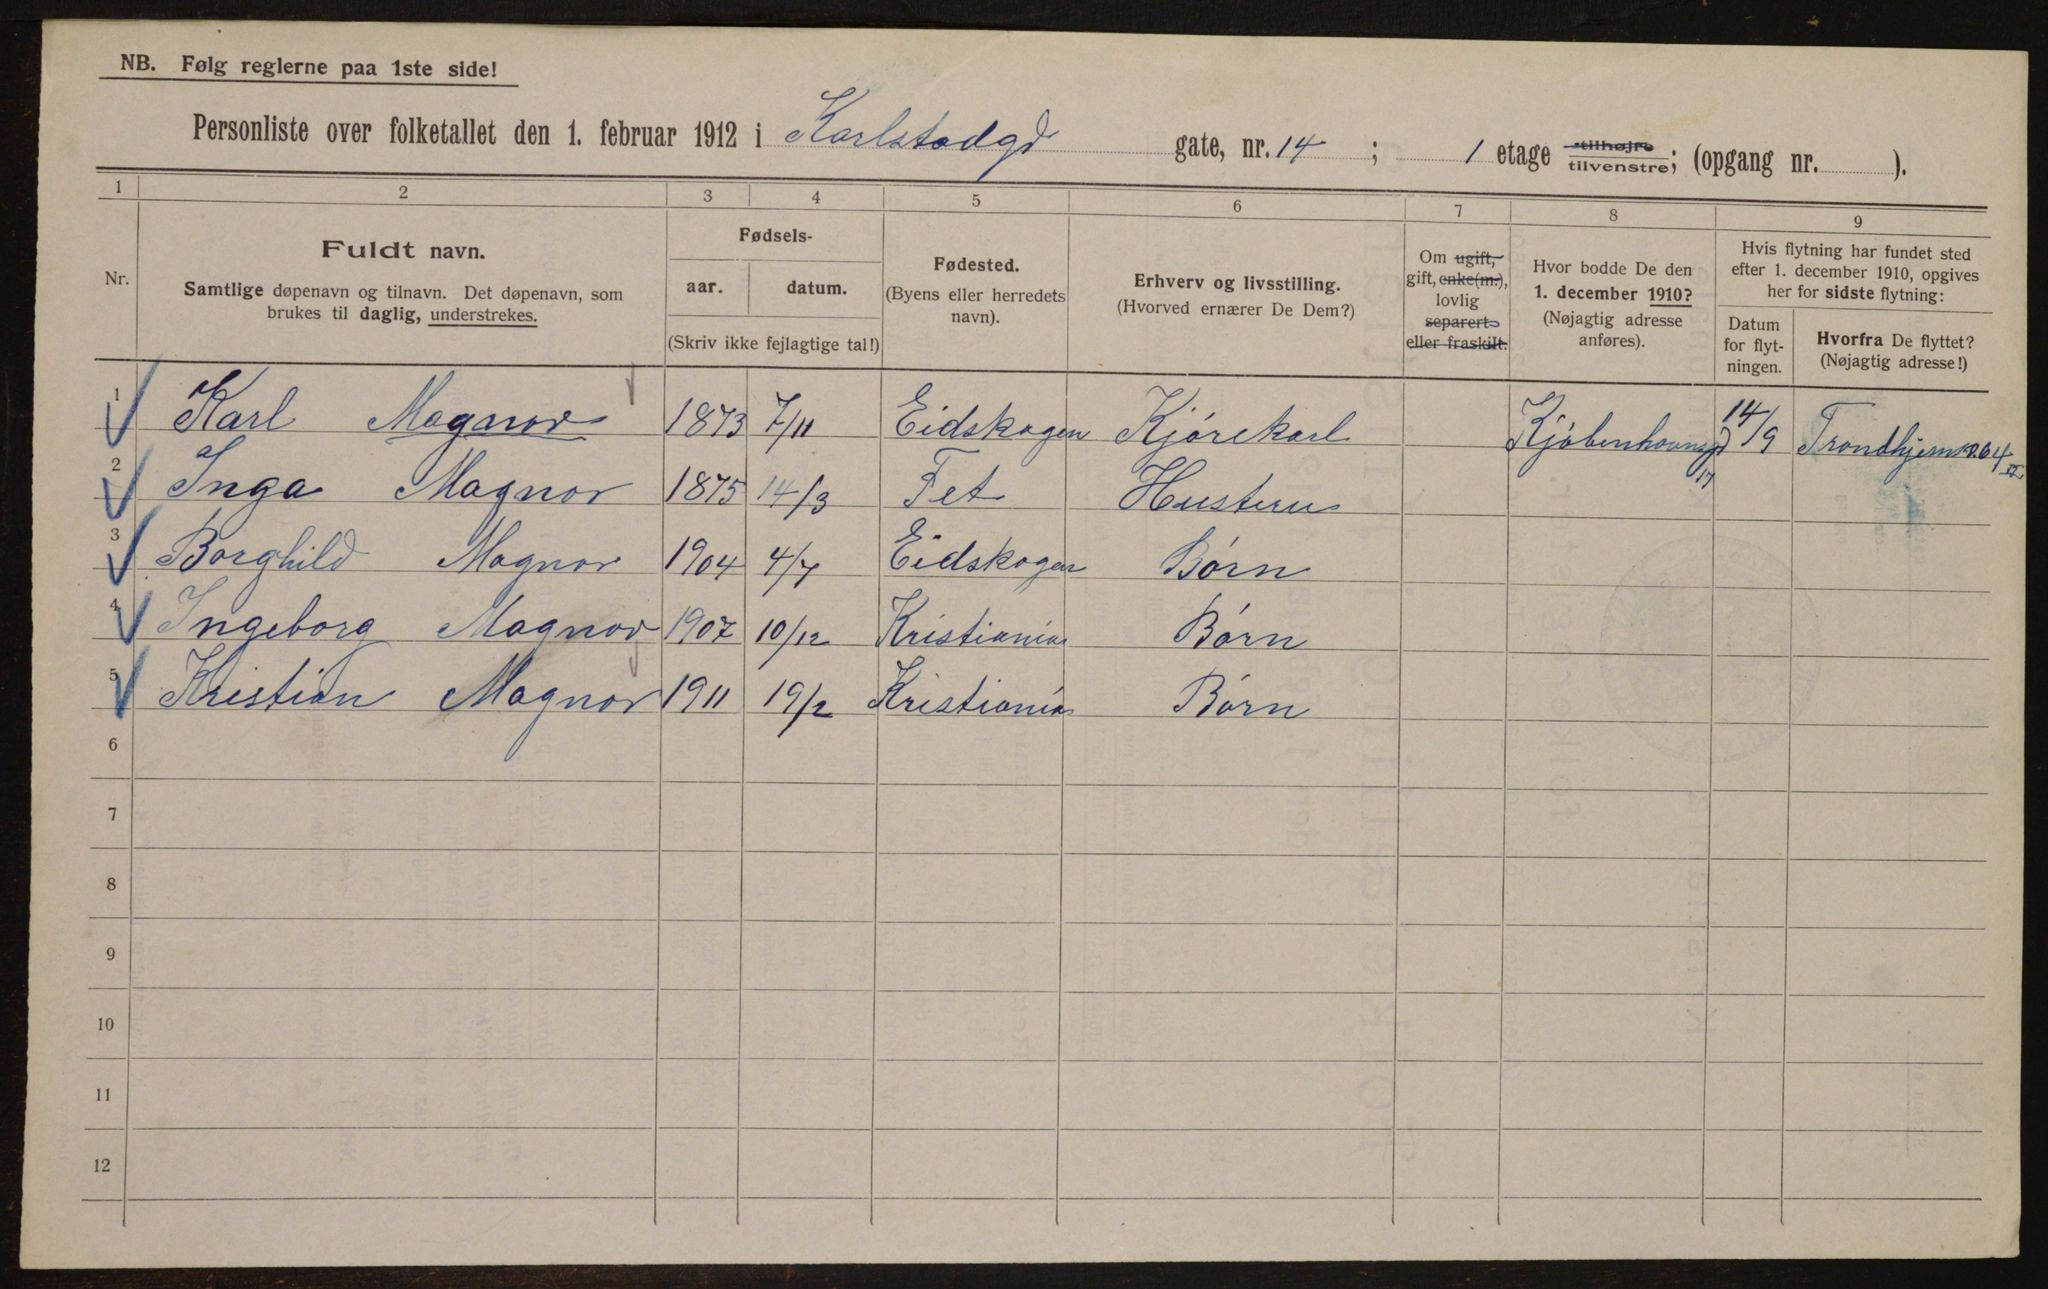 NB. Følg reglerne paa 1ste side!
Personliste over folketallet den 1. februar 1912 i Karlstadgd gate, nr. 14 ; 1 etage tilhøjre tilvenstre; (opgang nr. ).
1 2 3 4 5 6 7 8 9
Nr.
Fuldt navn.
Samtlige døpenavn og tilnavn. Det døpenavn, som
brukes til daglig, understrekes.
Fødsels-
aar. datum.
(Skriv ikke fejlagtige tal!)
Fødested.
(Byens eller herredets
navn).
Erhverv og livsstilling.
(Hvorved ernærer De Dem?)
Om ugift,
gift, enke(m.),
lovlig
separert
eller fraskilt.
Hvor bodde De den
1. december 1910?
(Nøjagtig adresse
anføres).
Hvis flytning har fundet sted
efter 1. december 1910, opgives
her for sidste flytning:
Datum
for flyt-
ningen.
Hvorfra De flyttet?
(Nøjagtig adresse!)
1 Karl Magnor 1873 7/11 Eidskogen Kjørekarl Kjøbenhavnsgd 17 14/9 Trondhjemsv. 64 IV
2 Inga Magnor 1875 14/3 Fet Hustru
3 Borghild Magnor 1904 4/7 Eidskogen Børn
4 Ingeborg Magnor 1907 10/12 Kristiania Børn
5 Kristian Magnor 1911 19/2 Kristiania Børn
6
7
8
9
10
11
12